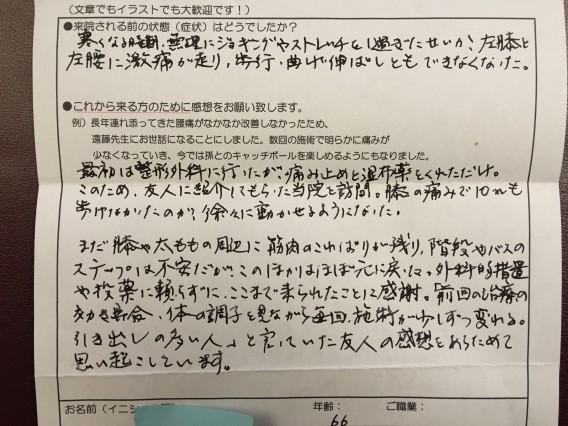 （文章でもイラストでも大歓迎です！）
●来院される前の状態（症状）はどうでしたか？
寒くなる時期、無理にジョギングやストレッチをし過ぎたせいか、左膝と
左腰に激痛が走り、歩行・曲げ伸ばしともできなくなった。
●これから来る方のために感想をお願い致します。
例）長年連れ添ってきた腰痛がなかなか改善しなかったため、
遠藤先生にお世話になることにしました。数回の施術で明らかに痛みが
少なくなっていき、今では孫とのキャッチボールを楽しめるようにもなりました。
最初は整形外科に行ったが、痛み止めと湿布薬をくれただけ。
このため、友人に紹介してもらった当院を訪問。膝の痛みで10mも
歩けなかったのが、徐々に動かせるようになった。
まだ膝や太ももの周辺に筋肉のこわばりが残り、階段やバスの
ステップは不安だが、このほかはほぼ元に戻った。外科的措置
や投薬に頼らずに、ここまで来られたことに感謝。「前回の治療の
効き具合、体の調子を見ながら毎回、施術が少しずつ変わる。
引き出しの多い人」と言っていた友人の感想をあらためて
思い起こしています。
お名前（イニシ
年齢：
ご職業：
66